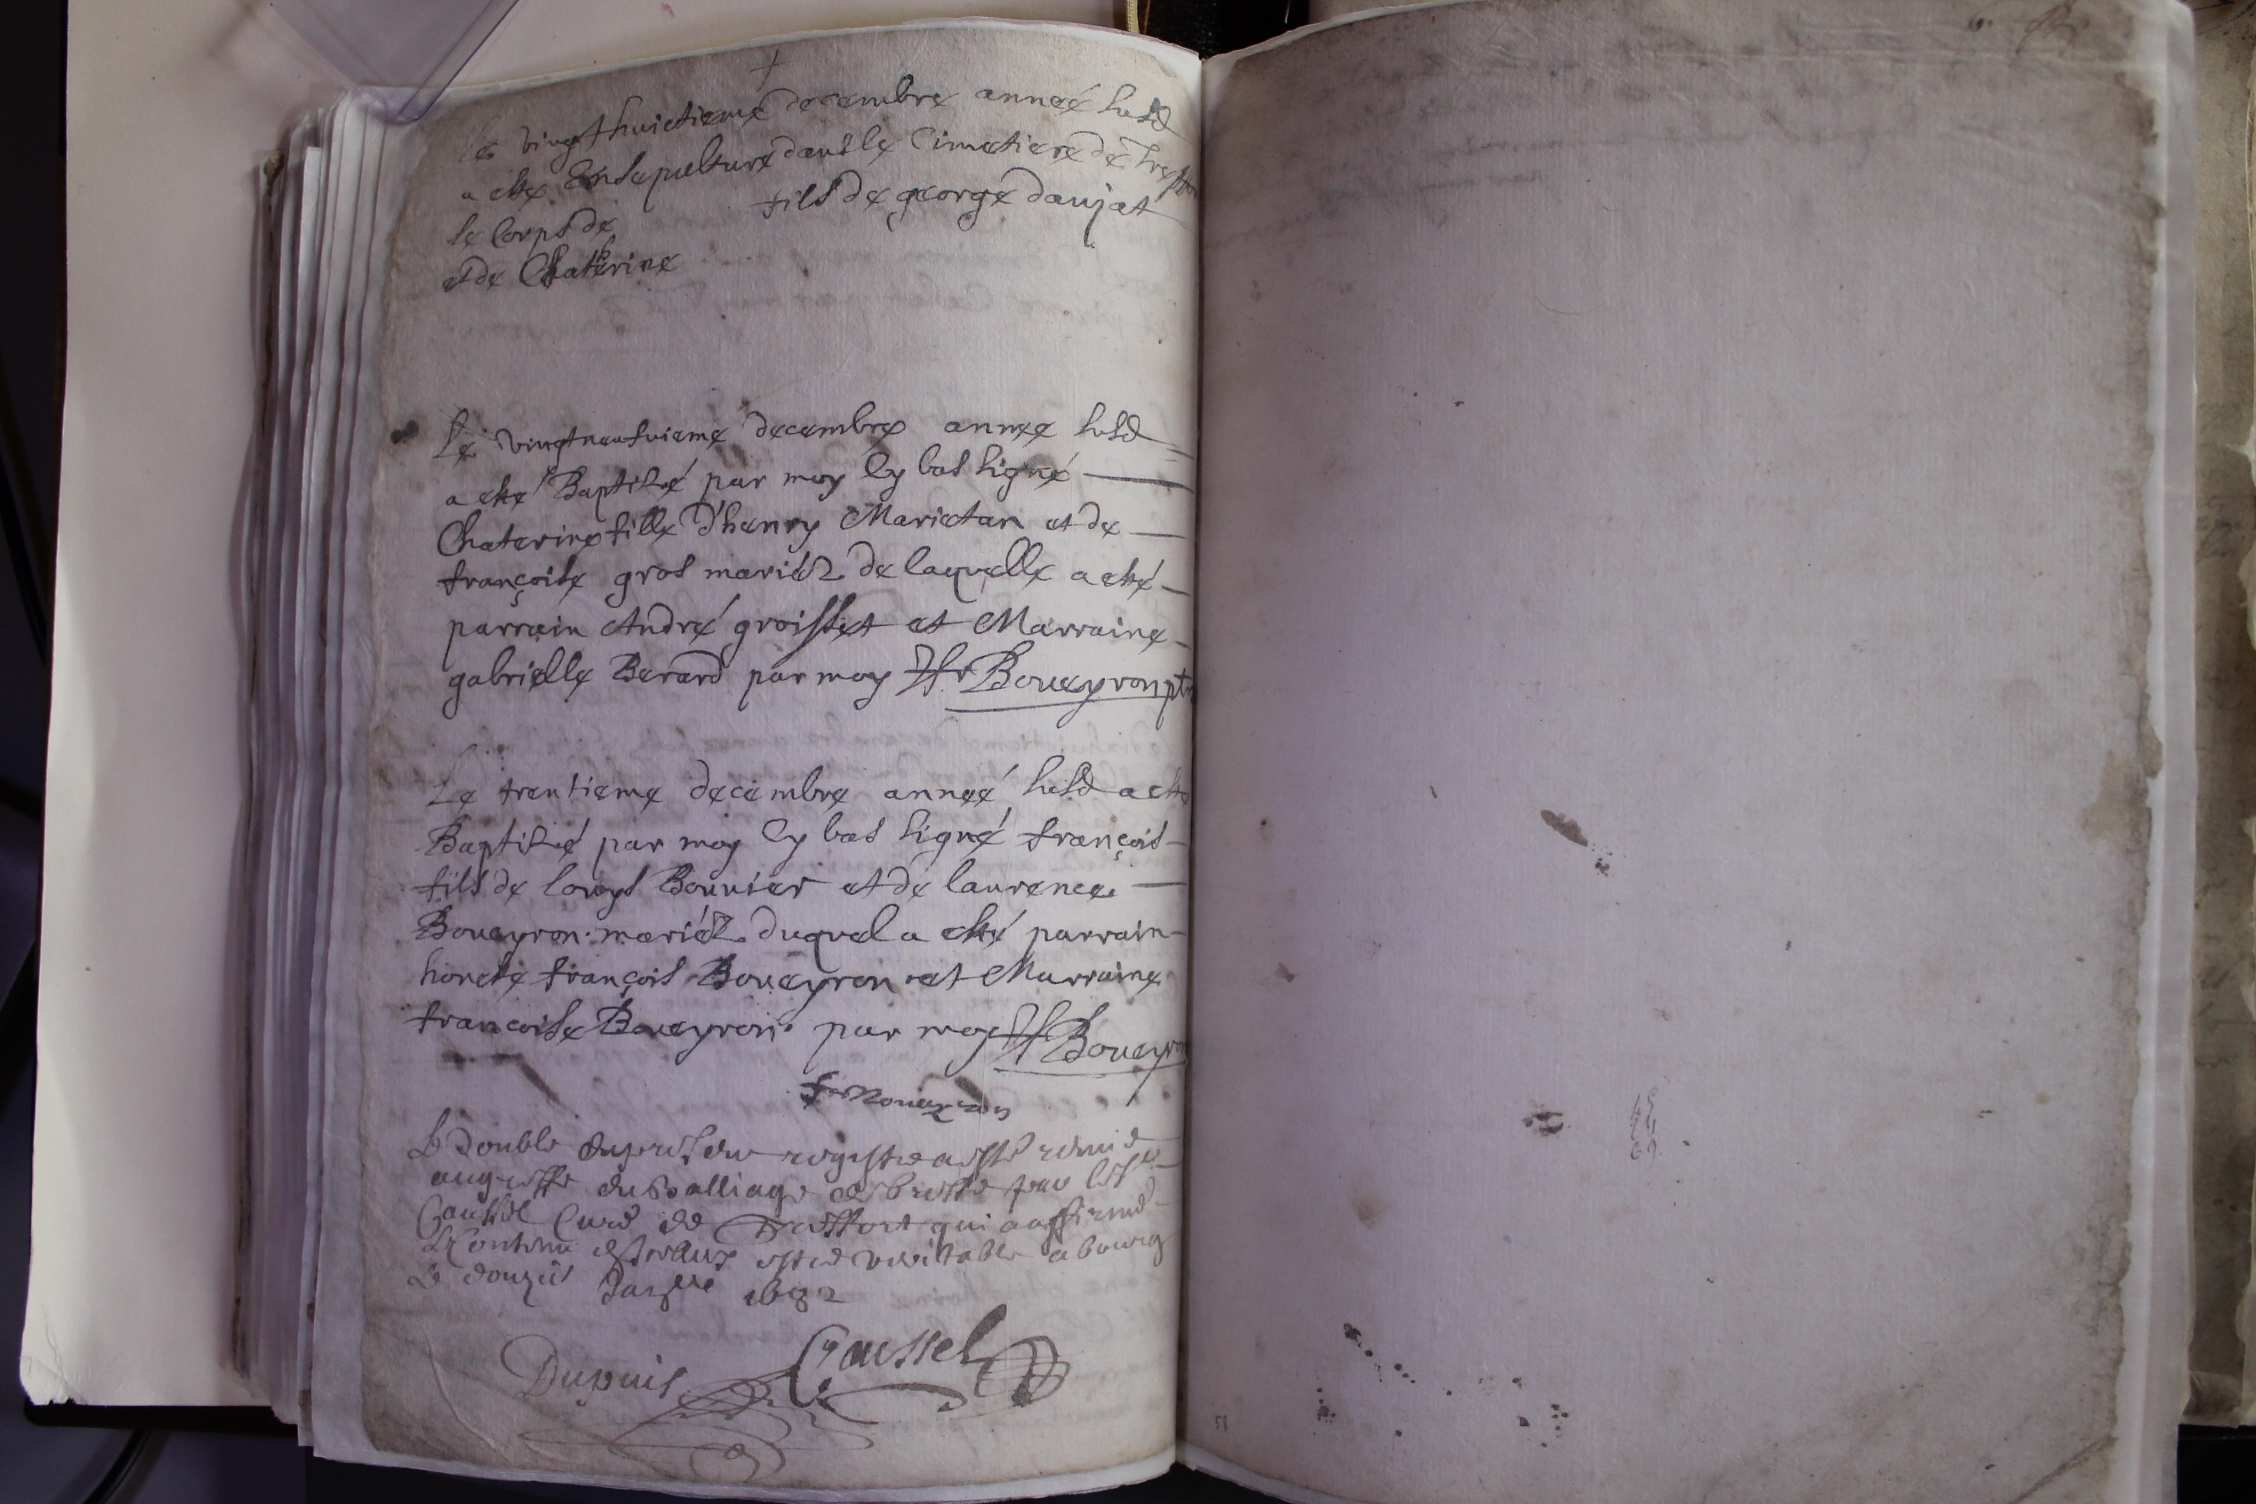 +
Le vingt huictieme decembre anneé susd
a esté Ensepulturé dans le Cimetiere de Treffort
le Corps de fils de george daujat
et de Chaterine
Le vingtneufvieme decembre anneé susd
a esté Baptizé par moy Cy bas signé
Chaterine fille d'henry Marietan et de
françoise gros mariéz de laquelle a esté
parrain André groisset et Marraine
gabrielle Berard par moy Boueyron ptre
Le trentieme decembre anneé susd a esté
Baptizé par moy Cy bas signé françois
fils de louys Bouvier et de laurence
Boueyron mariéz duquel a esté parrain
honeste françois Boueyron et Marraine
francoise Boueyron par moy Boueyron
f Boueyron
Le double du present registre a esté remis
au greffe du Balliage de bresse par
Gaussel Curé de Treffort qui a affirmé
Le Contenu estre veritable a bourg
Le douze 1682
Dupuis Gaussel